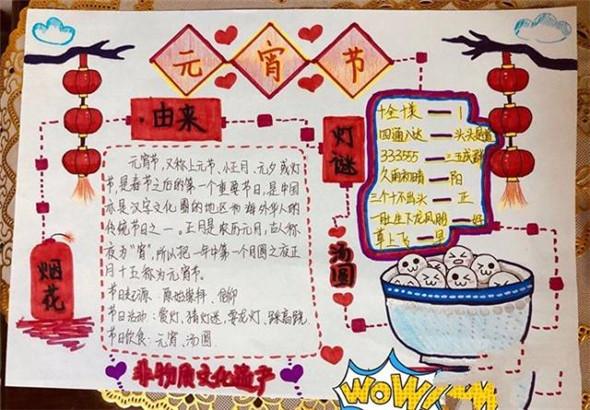 元宵节
由来
元宵节,又称上元节、小正月、元夕或灯
节,是春节之后的第一个重要节日,是中国
亦是汉字文化圈的地区和海外华人的
传统节日之一。正月是农历元月,古人称
夜为"宵",所以把一年中第一个月圆之夜正
月十五称为元宵节。
节日起源:原始崇拜、信仰
节日活动:赏灯、猜灯迷、耍龙灯、踩高跷
节日饮食:元宵、汤圆
灯谜
十全十美 — 1
四通八达 — 头头是道
333555 — 三五成群
久雨初晴 — 阳
三个十不出头 — 正
草上飞 — 早
汤圆
烟花
非物质文化遗产
WOW